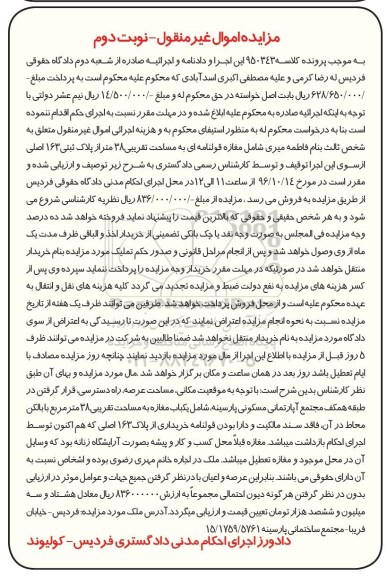 مزایده اموال غیر منقول - نوبت دوم
به موجب پرونده کلاسه ۹۵۰۳۴۳ این اجرا و دادنامه و اجرائیه صادره از شعبه دوم دادگاه حقوقی
فردیس له رضا کرمی و علیه مصطفی اکبری اسدآبادی که محکوم علیه محکوم است به پرداخت مبلغ-
/۶۲۸/۶۵۰/۰۰۰ ریال بابت اصل خواسته در حق محکوم له و مبلغ -/۱۴/۵۰۰/۰۰۰ ریال نیم عشر دولتی با
توجه به اینکه اجرائیه صادره به محکوم علیه ابلاغ شده و در مهلت مقرر نسبت به اجرای حکم اقدام ننموده
است بنا به درخواست محکوم له به منظور استیفای محکوم به و هزینه اجرائی اموال غیر منقول متعلق به
شخص ثالث بنام فاطمه میری شامل مغازه قولنامه ای به مساحت تقریبی ۳۸ متر از پلاک ثبتی ۱۶۳ اصلی
ازسوی این اجرا توقیف و توسط کارشناس رسمی دادگستری به شرح زیر توصیف و ارزیابی شده و
مقرر است در مورخ ۹۶/۱۰/۱۴ از ساعت ۱۱ الی ۱۲ در محل اجرای احکام مدنی دادگاه حقوقی فردیس
از طریق مزایده به فروش می رسد. مزایده از مبلغ -/۸۳۶/۰۰۰/۰۰۰ ریال نظریه کارشناسی شروع می
شود و به هر شخص حقیقی و حقوقی که بالاترین قیمت را پیشنهاد نماید فروخته خواهد شد ده درصد
وجه مزایده فی المجلس به صورت وجه نقد یا چک بانکی تضمینی از خریدار اخذ و الباقی ظرف مدت یک
ماه از وی وصول خواهد شد و پس از انجام مراحل قانونی و صدور حکم تملیک مورد مزایده بنام خریدار
منتقل خواهد شد در صورتیکه در مهلت مقرر خریدار وجه مزایده را پرداخت ننماید سپرده وی پس از
کسر هزینه های مزایده به نفع دولت ضبط و مزایده تجدید می گردد کلیه هزینه های نقل و انتقال به
عهده محکوم علیه است و از محل فروش پرداخت خواهد شد. طرفین می توانند ظرف یک هفته از تاریخ
مزایده نسبت به نحوه انجام مزایده اعتراض نمایند که در این صورت تا رسیدگی به اعتراض از سوی
دادگاه مورد مزایده به نام خریدار منتقل نخواهد شد ضمنا طالبین به شرکت در مزایده می توانند ظرف
۵ روز قبل از مزایده با اطلاع این اجرا از مال مورد مزایده بازدید نمایند چنانچه روز مزایده مصادف با
ایام تعطیل باشد روز بعد در همان ساعت و مکان برگزار خواهد شد. مال مورد مزایده و بهای آن طبق
نظر کارشناس بدین شرح است: با توجه به موقعیت مکانی، مساحت عرصه، راه دسترسی، قرار گرفتن در
طبقه همکف مجتمع آپارتمانی مسکونی پارسینه، شامل یکباب مغازه به مساحت تقریبی ۳۸ متر مربع با بالکن
محاط در آن، فاقد سند مالکیت و دارا بودن قولنامه خریداری از پلاک ۱۶۳ اصلی که هم اکنون توسط
اجرای احکام بازداشت میباشد. مغازه قبلاً محل کسب و کار و پیشه بصورت آرایشگاه زنانه بود که وسایل
آن در محل موجود و مغازه تعطیل میباشد. ملک در اجاره خانم مهری رضوی بوده و اشخاص نسبت به
آن دارای حقوقی می باشند. بنابراین عرصه و اعیان با درنظر گرفتن جمیع جهات و عوامل موثر در ارزیابی
بدون در نظر گرفتن هر گونه دیون احتمالی مجموعاً به ارزش ۸۳۶۰۰۰۰۰۰ ریال معادل هشتاد و سه
میلیون و ششصد هزار تومان تعیین قیمت و ارزیابی میگردد. آدرس ملک مورد مزایده: فردیس - خیابان
فریبا - مجتمع ساختمانی پارسینه ۱۵/۱۷۵۹/۵۷۶۱
دادورز اجرای احکام مدنی دادگستری فردیس - کولیوند